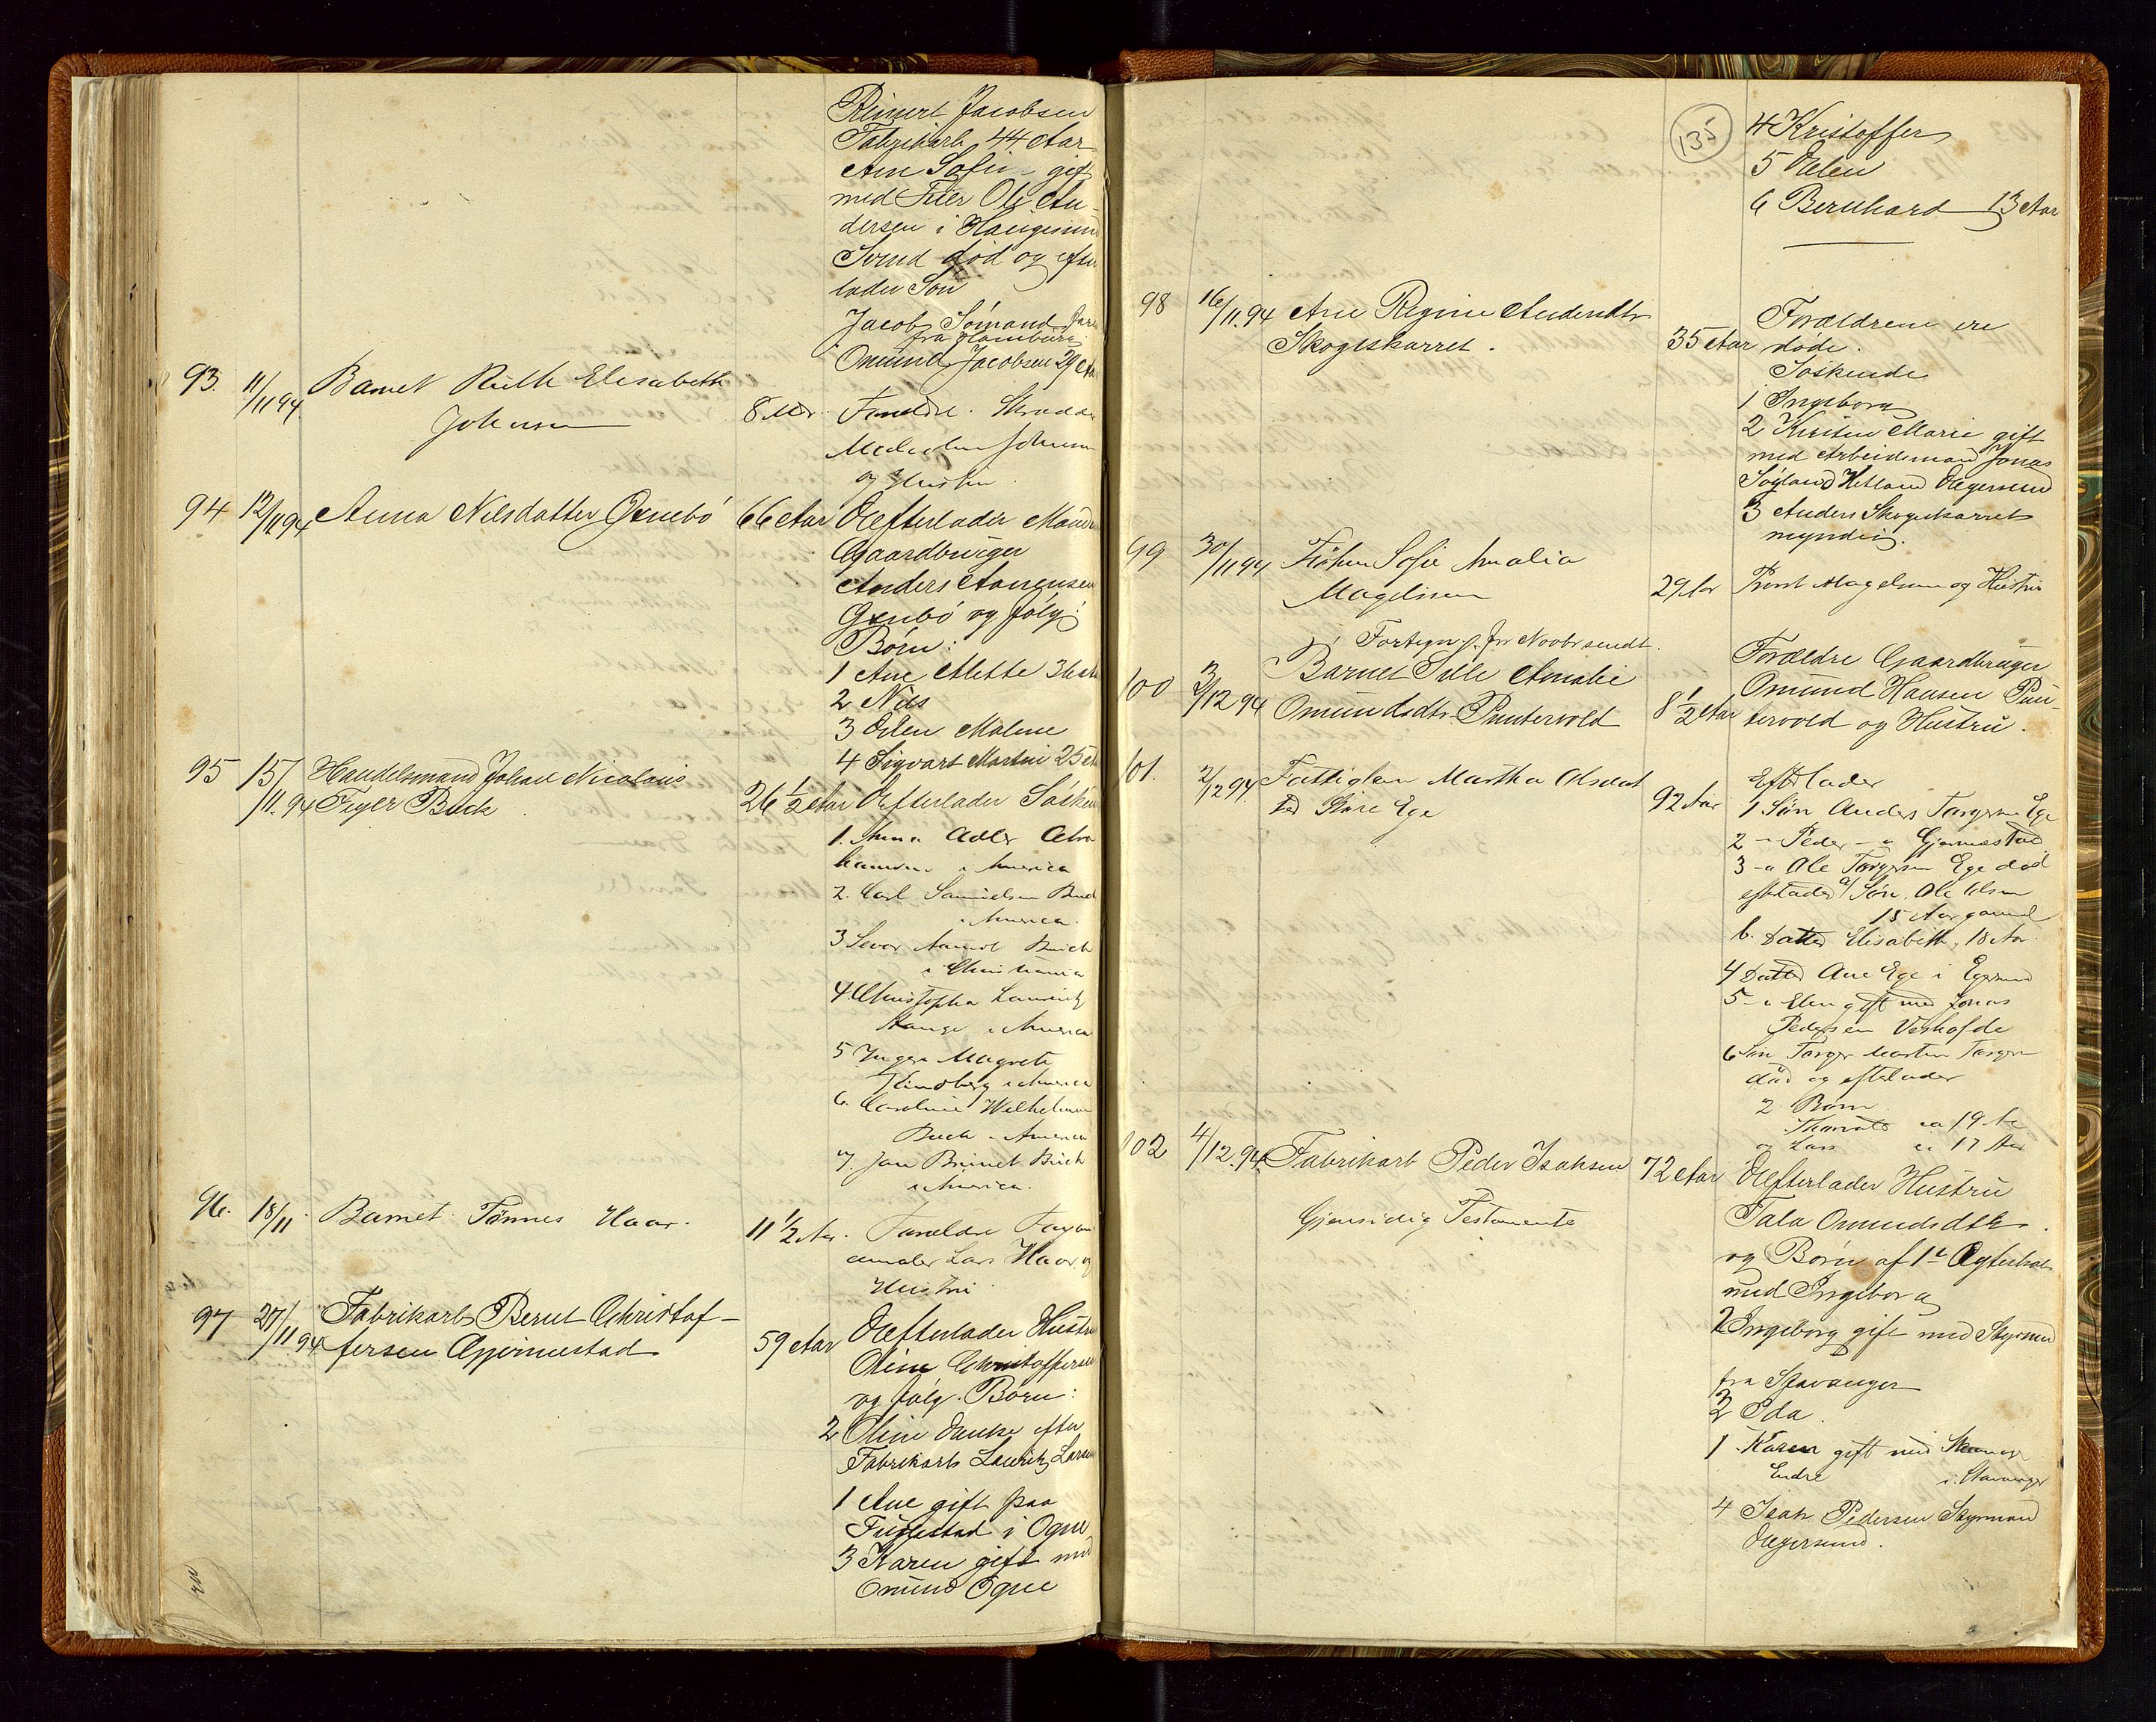 Reinert Jacobsen
Fabrikarb 44 Aar
Ane Sofie gift
med Fiier Ole An-
dersen i Haugesund
Svend død og efter
lader Søn
Jacob Sømand
fra Hamburg
Omund Jacobsen 29 Aar
93. 11/11 94. Barnet Ruth Elisabeth
Johnsen 8 Mdr. Forældre.
Johnsen
og Hustru
94 12/11 94 Anna Nilsdatter Grnebø 66 Aar Efterlader Manden
Gaardbruger
Anders Aanensen
Grnebø og følg:
Børn:
1 Ane Mette 36 Aar
2 Nils
3 Elen Malene
4 Sigvart Martin 25 Aar
95 15/11.94 Handelsmand Johan Nicolaus
Feyer Buch 26 1/2 Aar Efterlader Søsken
1. Anna Adler Abra
hamsen i America
2. Carl Samuelsen Buch
i America.
3 Buch
i Christiania
4. Christopha Lauritz
Stange i America
5 Inger Magrete
i America
6. Caroline Wilhelmine
Buch i America
7. Jan Buch
i America.
96. 18/11. Barnet Tønnes Haar. 11 1/2 Aar. Forældre
Lars Haar og
Hustru
97 27/11 94 Fabrikarb Berut Christof-
fersen Gjermestad 59 Aar Efterlader Hustru
Oline Christoffersen
og følg. Børn:
2 Oline Enke efter
Fabrikarb Lauritz Larsen
1 Ane gift paa
Fuglestad i Ogne
3 Karen gift med
Omund Ogne
135
4 Kristoffer
5 Elen
6 Bernhard 13 Aar
98 16/11.94 Ane Regine Andersdtr
Skogeskarret. 35 Aar Forældrene ere
døde.
Søskende
1 Ingeborg
2 Kirsten Marie gift
med Arbeidsmand Jonas
Søyland Hetland Egersund
3 Anders Skogeskarret
myndig.
99 30/11 94 Frøken Sofie Amalia
Magelssen 29 Aar Provst Magelssen og Hustru
Fortegn. f. for Novbr sendt.
100 3/12 94 Barnet Sille Amalie
Omundsdtr. Puntervold 8 1/2 Aar Forældre Gaardbruger
Omund Hansen Pun-
tervold og Hustru.
101. 2/12 94. Fattiglem Martha Olsdat
ter Store Ege 92 Aar Efterlader
1 Søn Anders Torgersen Ege
2 - Peder - Gjermestad
3 - Ole Torgersen Ege død
efterlader a/ Søn Ole Olsen
15 Aar gammel
b. Datter Elisabeth, 18 Aar.
4 Datter Ane Ege i Egersund
5 - Elen gift med Jonas
Pedersen
6 Søn Torger Martin
død og efterlader
2 Børn
Thorvald ca 19 Aar
og Lars ca 17 Aar
102 4/12.94 Fabrikarb Peder Isaksen 72 Aar Efterlader Hustru
Gjensidig Testamente
Tala Omundsdtr.
og Børn af 1ste Ægteskab
med Ingeborg
2 Ingeborg gift med Styrmand
fra Stavanger
3 Ida.
1 Karen gift med
Endre i Stavanger
4 Isak Pedersen Styrmand
Egersund.